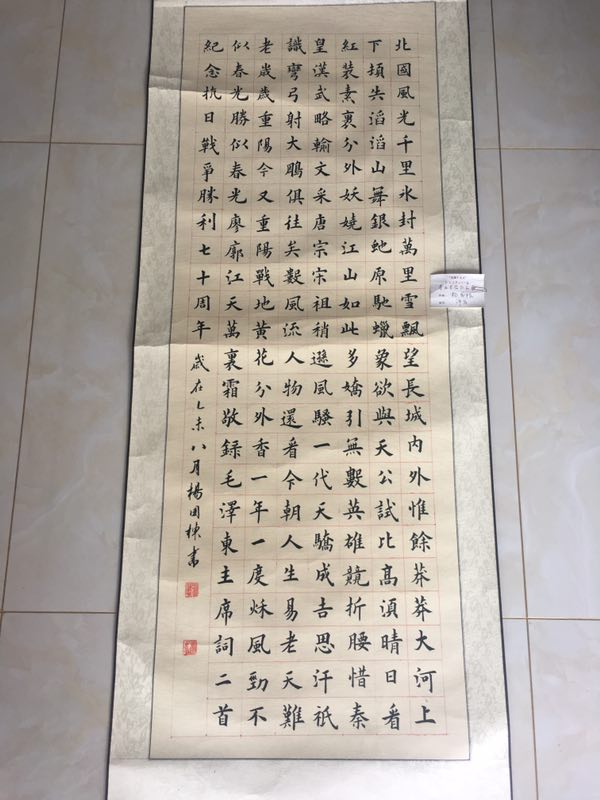 北國風光千里氷封萬里雪飄望長城内外惟餘莽莽大河上
下頓失滔滔山舞銀虵原馳蠟象欲與天公試比高湏晴日看
紅裝素裹分外妖嬈江山如此多嬌引無數英雄競折腰惜秦
皇漢武略輸文采唐宗宋祖稍遜風騷一代天驕成吉思汗祇
識彎弓射大鵰俱往矣數風流人物還看今朝人生易老天難
老歲歲重陽今又重陽戰地黃花分外香一年一度秌風勁不
似春光勝似春光廖廓江天萬裏霜敬録毛澤東主席詞二首
紀念抗日戰爭勝利七十周年 歲在乙未八月楊棟書